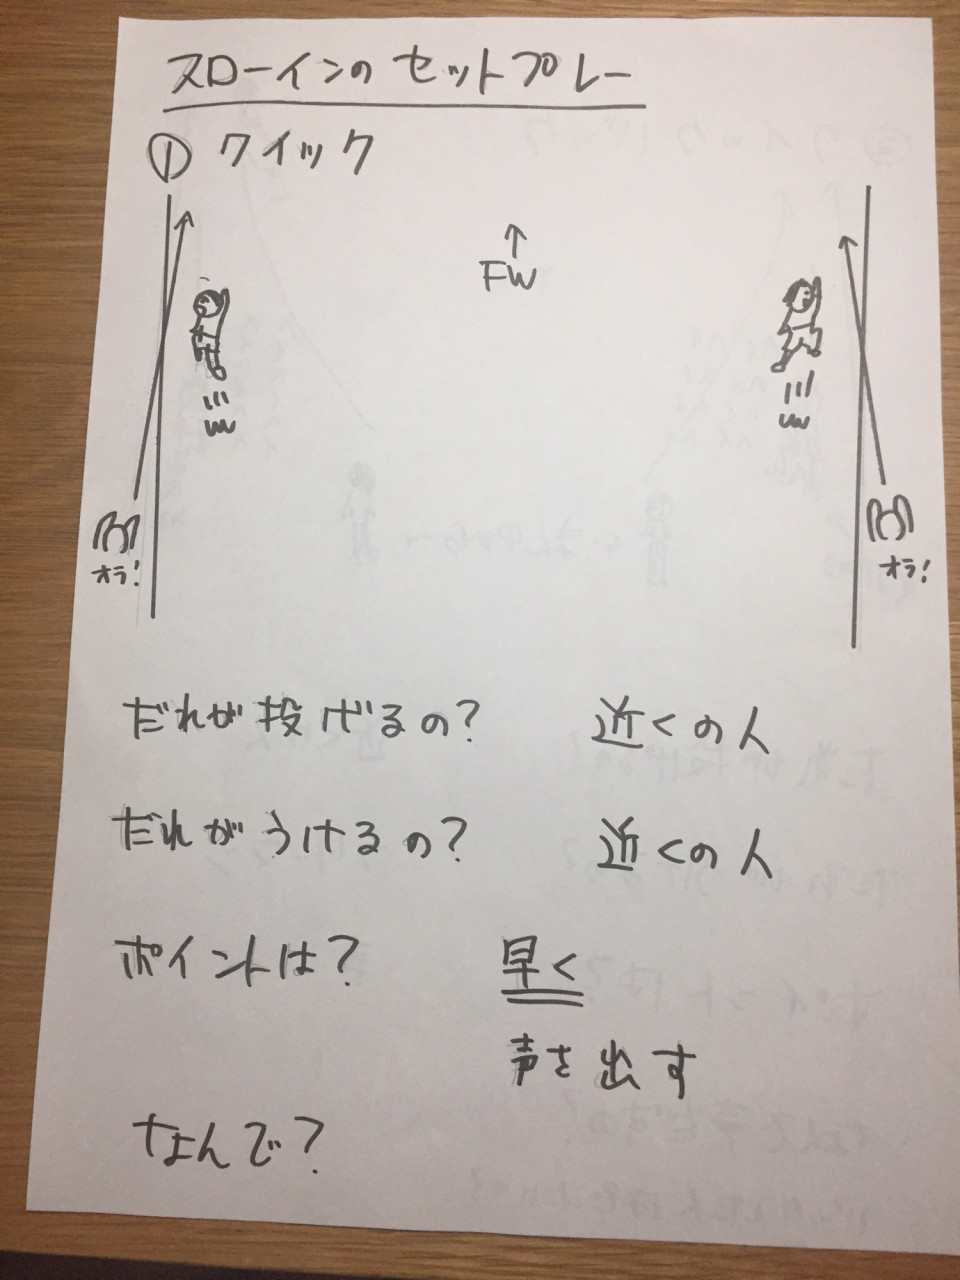 スローインのセットプレー
① クイック
FW
オラ!
オラ!
だれが投げるの? 近くの人
だれがうけるの? 近くの人
ポイントは? 早く
声を出す
なんで?